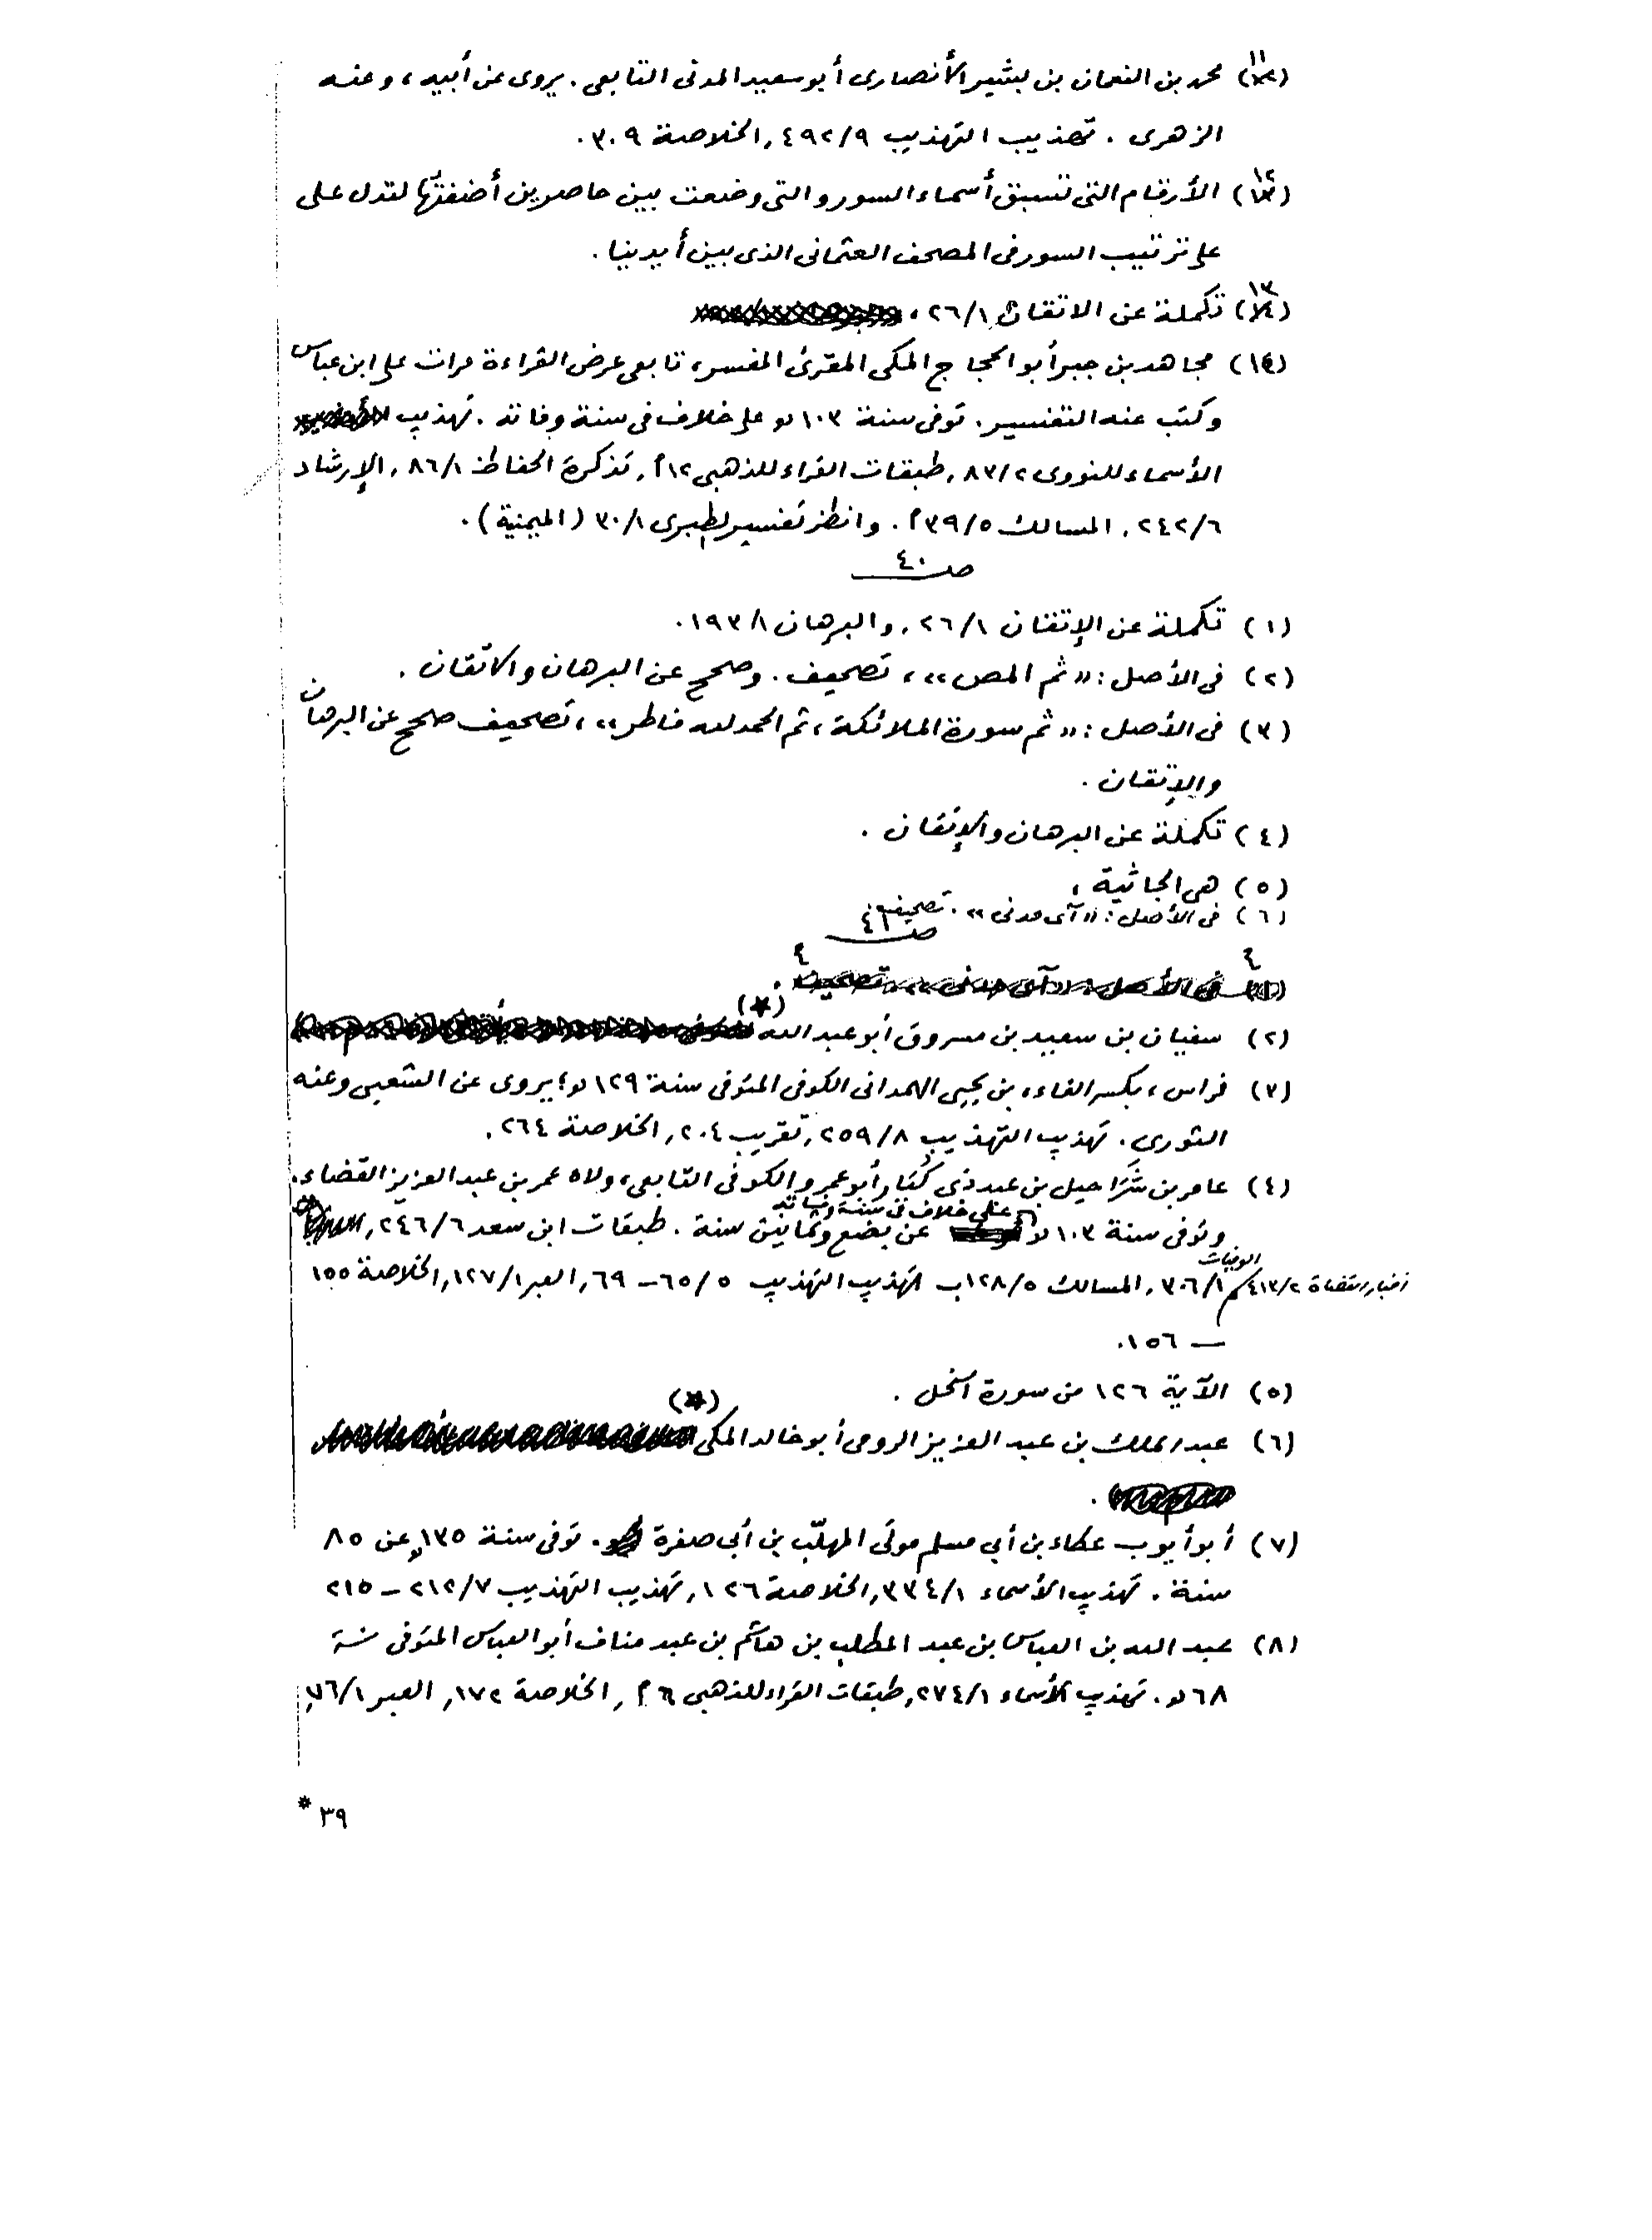 (١١) محمد بن النعمان بن بشير الأنصارى أبو سعيد المدنى التابعى. يروى عن أبيه، وعنه
الزهرى. تهذيب التهذيب ٤٩٢/٩, الخلاصة ٣٠٩.
(١٢) الأرقام التى تسبق أسماء السور والتى وضعت بين حاصرين أضفتها لتدل على
على ترتيب السور فى المصحف العثمانى الذى بين أيدينا.
(١٣) تكملة عن الاتقان ٢٦/١.
(١٤) مجاهد بن جبر أبو الحجاج المكى المقرئ المفسر، تابعى عرض القراءة مرات على ابن عباس
وكتب عنه التفسير. توفى سنة ١٠٣ هـ على خلاف فى سنة وفاته. تهذيب
الأسماء للنووى ٨٣/٢, طبقات القراء للذهبى ١٢ أ, تذكرة الحفاظ ٨٦/١, الإرشاد
٢٤٢/٦, المسالك ٣٩/٥ أ. وانظر تفسير الطبرى ٣٠/١ (الميمنية).
صـ ٤٠
(١) تكملة عن الإتقان ٢٦/١, والبرهان ١٩٣/١.
(٢) فى الأصل: «ثم المص»، تصحيف. وصحح عن البرهان والاتقان.
(٣) فى الأصل: «ثم سورة الملائكة، ثم الحمد لله فاطر»، تصحيف صحح عن البرهان
والإتقان.
(٤) تكملة عن البرهان والإتقان.
(٥) هى الجاثية،
(٦) فى الأصل: «آى مدنى». تصحيف
صـ ٤١
(٢) سفيان بن سعيد بن مسروق أبو عبد الله (*)
(٣) فراس، بكسر الفاء، بن يحيى الهمدانى الكوفى المتوفى سنة ١٢٩ هـ؛ يروى عن الشعبى وعنه
الثورى. تهذيب التهذيب ٢٥٩/٨, تقريب ٢٠٤, الخلاصة ٢٦٤.
(٤) عامر بن شَرَاحيل بن عبد ذى كُبَار أبو عمرو الكوفى التابعى، ولاه عمر بن عبد العزيز القضاء.
وتوفى سنة ١٠٣ هـ على خلاف فى سنة وفاته عن بضع وثمانين سنة. طبقات ابن سعد ٢٤٦/٦,
أخبار القضاة ٤١٣/٢ الوفيات ٣٠٦/١, المسالك ١٢٨/٥ ب تهذيب التهذيب ٦٥/٥ – ٦٩, العبر ١٢٧/١, الخلاصة ١٥٥
– ١٥٦.
(٥) الآية ١٢٦ من سورة النحل.
(٦) عبد الملك بن عبد العزيز الرومى أبو خالد المكى (*)
(٧) أبو أيوب عطاء بن أبي مسلم مولى المهلّب بن أبى صفرة. توفى سنة ١٣٥ هـ عن ٨٥
سنة. تهذيب الأسماء ٣٣٤/١, الخلاصة ١٢٦, تهذيب التهذيب ٢١٢/٧ – ٢١٥
(٨) عبد الله بن العباس بن عبد المطلب بن هاشم بن عبد مناف أبو العباس المتوفى سنة
٦٨ هـ. تهذيب الأسماء ٢٧٤/١, طبقات القراء للذهبى ٦ أ, الخلاصة ١٧٢, العبر ٧٦/١,
٣٩ *